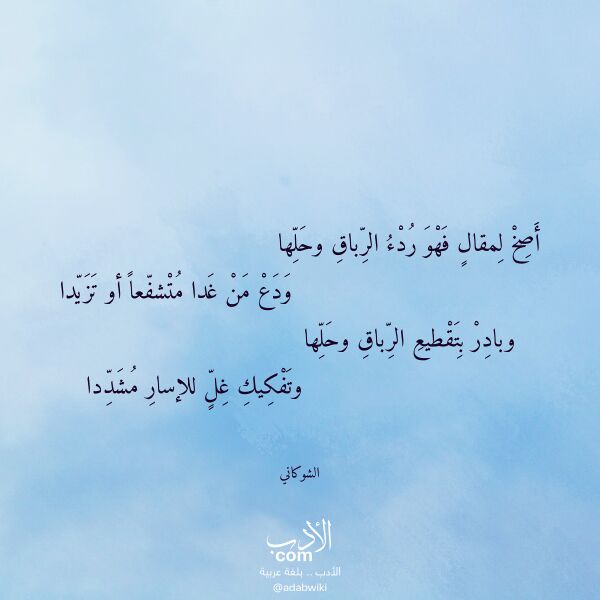 أَصِخْ لِمقالٍ فَهْوَ رُدْءُ الرِّباقِ وحَلِّها
وَدَعْ مَنْ غَدا مُتْشفّعاً أو تَزَيّدا
وبادِرْ بِتَقْطيعِ الرِّباقِ وحَلِّها
وتَفْكِيكِ غِلٍّ للإسارِ مُشَدِّدا
الشوكاني
الأدب
com
الأدب .. بلغة عربية
@adabwiki